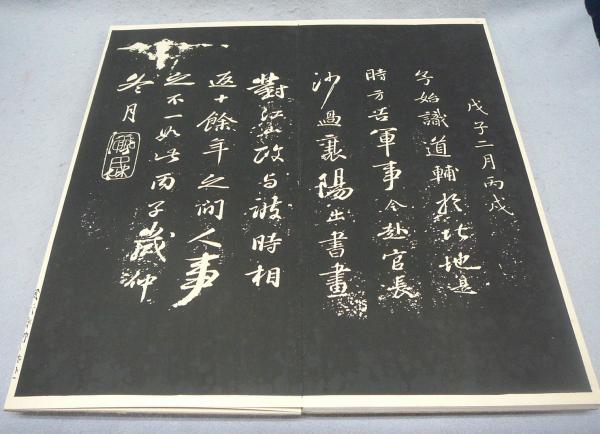 戊子二月丙戌
兮始識道輔於此地是
時方苦軍事今赴官長
沙過襄陽出書畫
對江山政与彼時相
返十餘年之间人事
之不一如此丙子歲仲
冬月